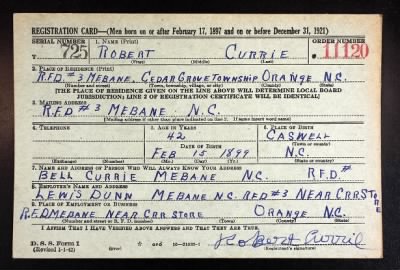 REGISTRATION CARD—(Men born on or after February 17, 1897 and on or before December 31, 1921)
SERIAL NUMBER 1. NAME (Print) ORDER NUMBER
T 725 ROBERT CURRIE 11120
(First) (Middle) (Last)
2. PLACE OF RESIDENCE (Print)
R.F.D. #3 MEBANE, CEDAR GROVE TOWNSHIP ORANGE N.C.
(Number and street) (Town, township, village, or city) (County) (State)
[THE PLACE OF RESIDENCE GIVEN ON THE LINE ABOVE WILL DETERMINE LOCAL BOARD
JURISDICTION; LINE 2 OF REGISTRATION CERTIFICATE WILL BE IDENTICAL]
3. MAILING ADDRESS
R.F.D #3 MEBANE N.C.
[Mailing address if other than place indicated on line 2. If same insert word same]
4. TELEPHONE 5. AGE IN YEARS 6. PLACE OF BIRTH
42 CASWELL
DATE OF BIRTH (Town or county)
FEB 15 1899 N.C.
(Exchange) (Number) (Mo.) (Day) (Yr.) (State or country)
7. NAME AND ADDRESS OF PERSON WHO WILL ALWAYS KNOW YOUR ADDRESS
BELL CURRIE MEBANE N.C. R.F.D#
8. EMPLOYER'S NAME AND ADDRESS
LEWIS DUNN MEBANE N.C. RFD #3 NEAR CRR STORE
9. PLACE OF EMPLOYMENT OR BUSINESS
R.F.D MEBANE NEAR CRR. STORE ORANGE N.C.
(Number and street or R. F. D. number) (Town) (County) (State)
I AFFIRM THAT I HAVE VERIFIED ABOVE ANSWERS AND THAT THEY ARE TRUE.
D. S. S. Form 1
(Revised 1-1-42) (over) Robert Currie